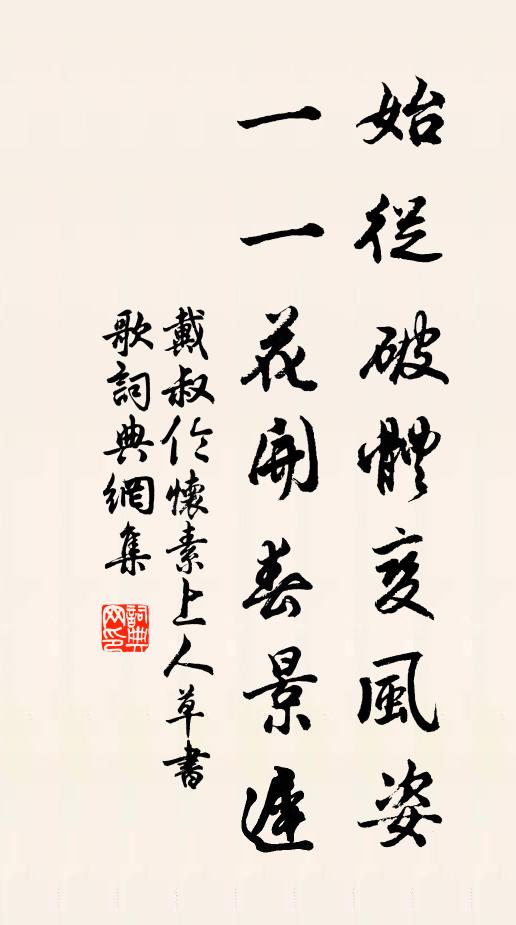 始從破體變風姿
一一花開春景遲
戴叔伦懷素上人草書
歌詞典網集
詞典网印